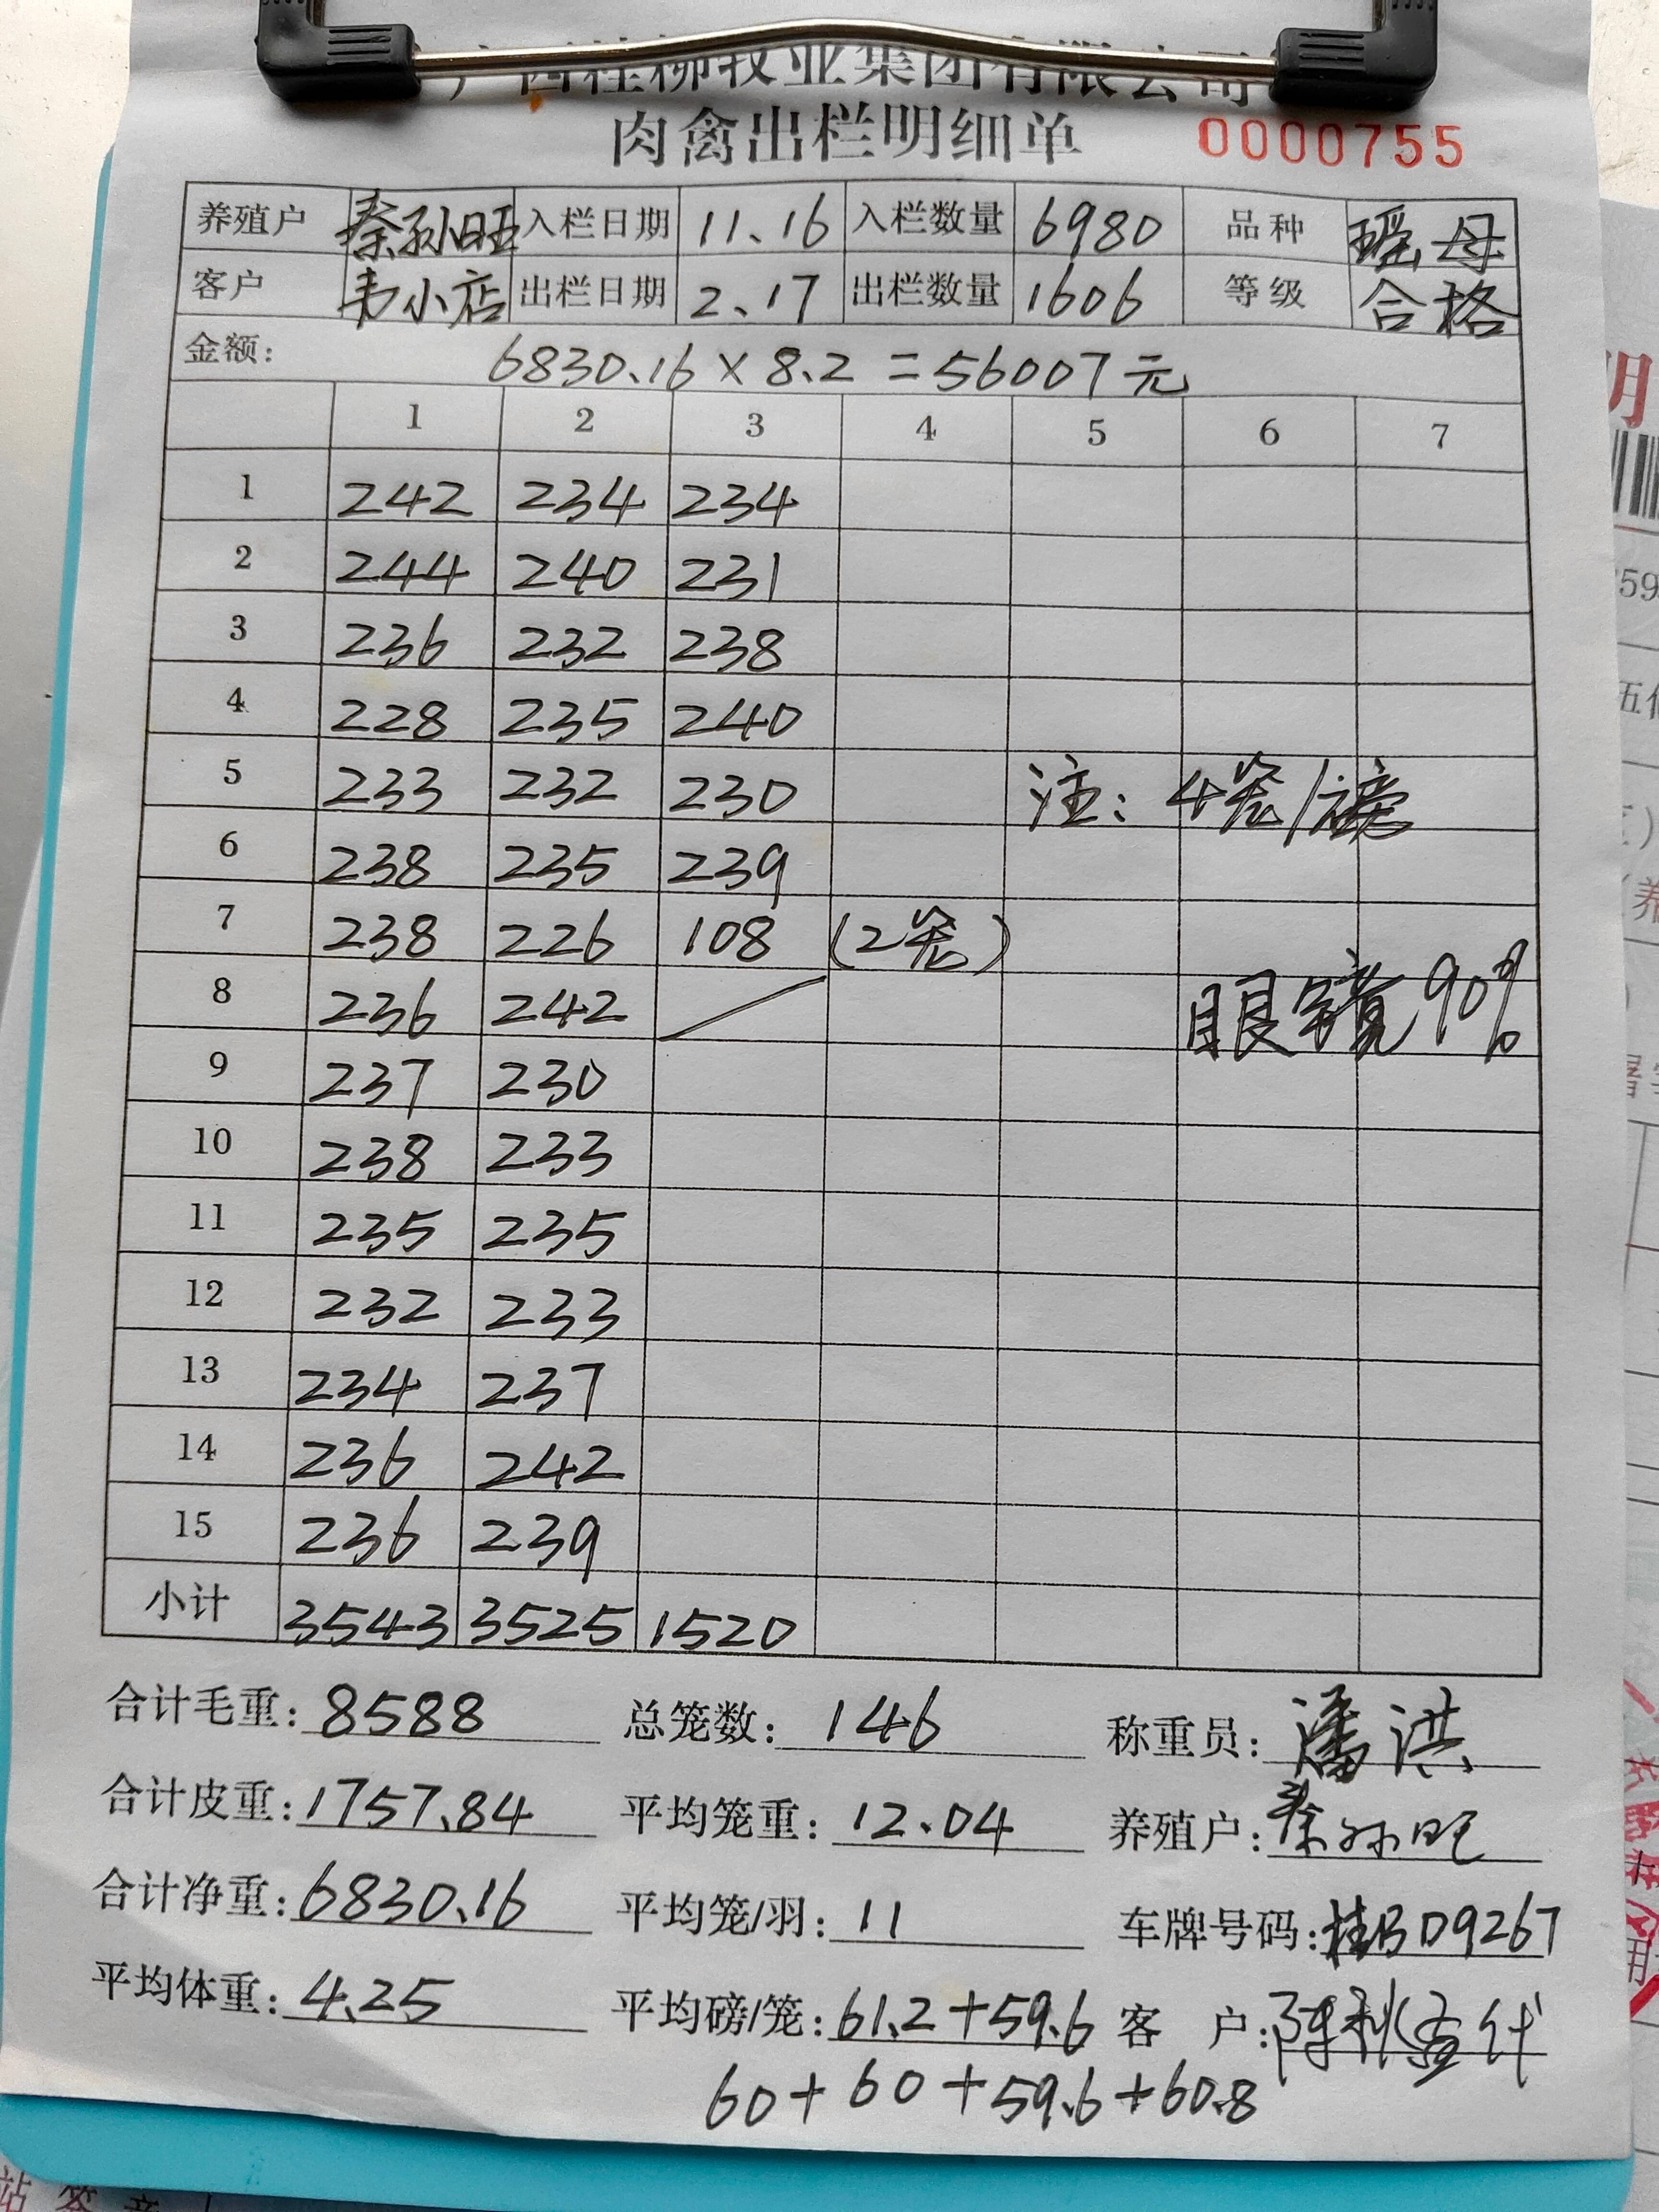 广西桂柳牧业集团有限公司
肉禽出栏明细单 0000755
养殖户 秦孙旺 入栏日期 11.16 入栏数量 6980 品种 瑶母
客户 韦小店 出栏日期 2.17 出栏数量 1606 等级 合格
金额: 6830.16×8.2=56007元
1 2 3 4 5 6 7
1 242 234 234
2 244 240 231
3 236 232 238
4 228 235 240
5 233 232 230 注: 4笼/磅
6 238 235 239
7 238 226 108 (2笼)
8 236 242 眼镜90%
9 237 230
10 238 233
11 235 235
12 232 233
13 234 237
14 236 242
15 236 239
小计 3543 3525 1520
合计毛重: 8588 总笼数: 146 称重员: 潘洪
合计皮重: 1757.84 平均笼重: 12.04 养殖户: 秦孙旺
合计净重: 6830.16 平均笼/羽: 11 车牌号码: 桂BD9267
平均体重: 4.25 平均磅/笼: 61.2+59.6 客户:
60+60+59.6+60.8